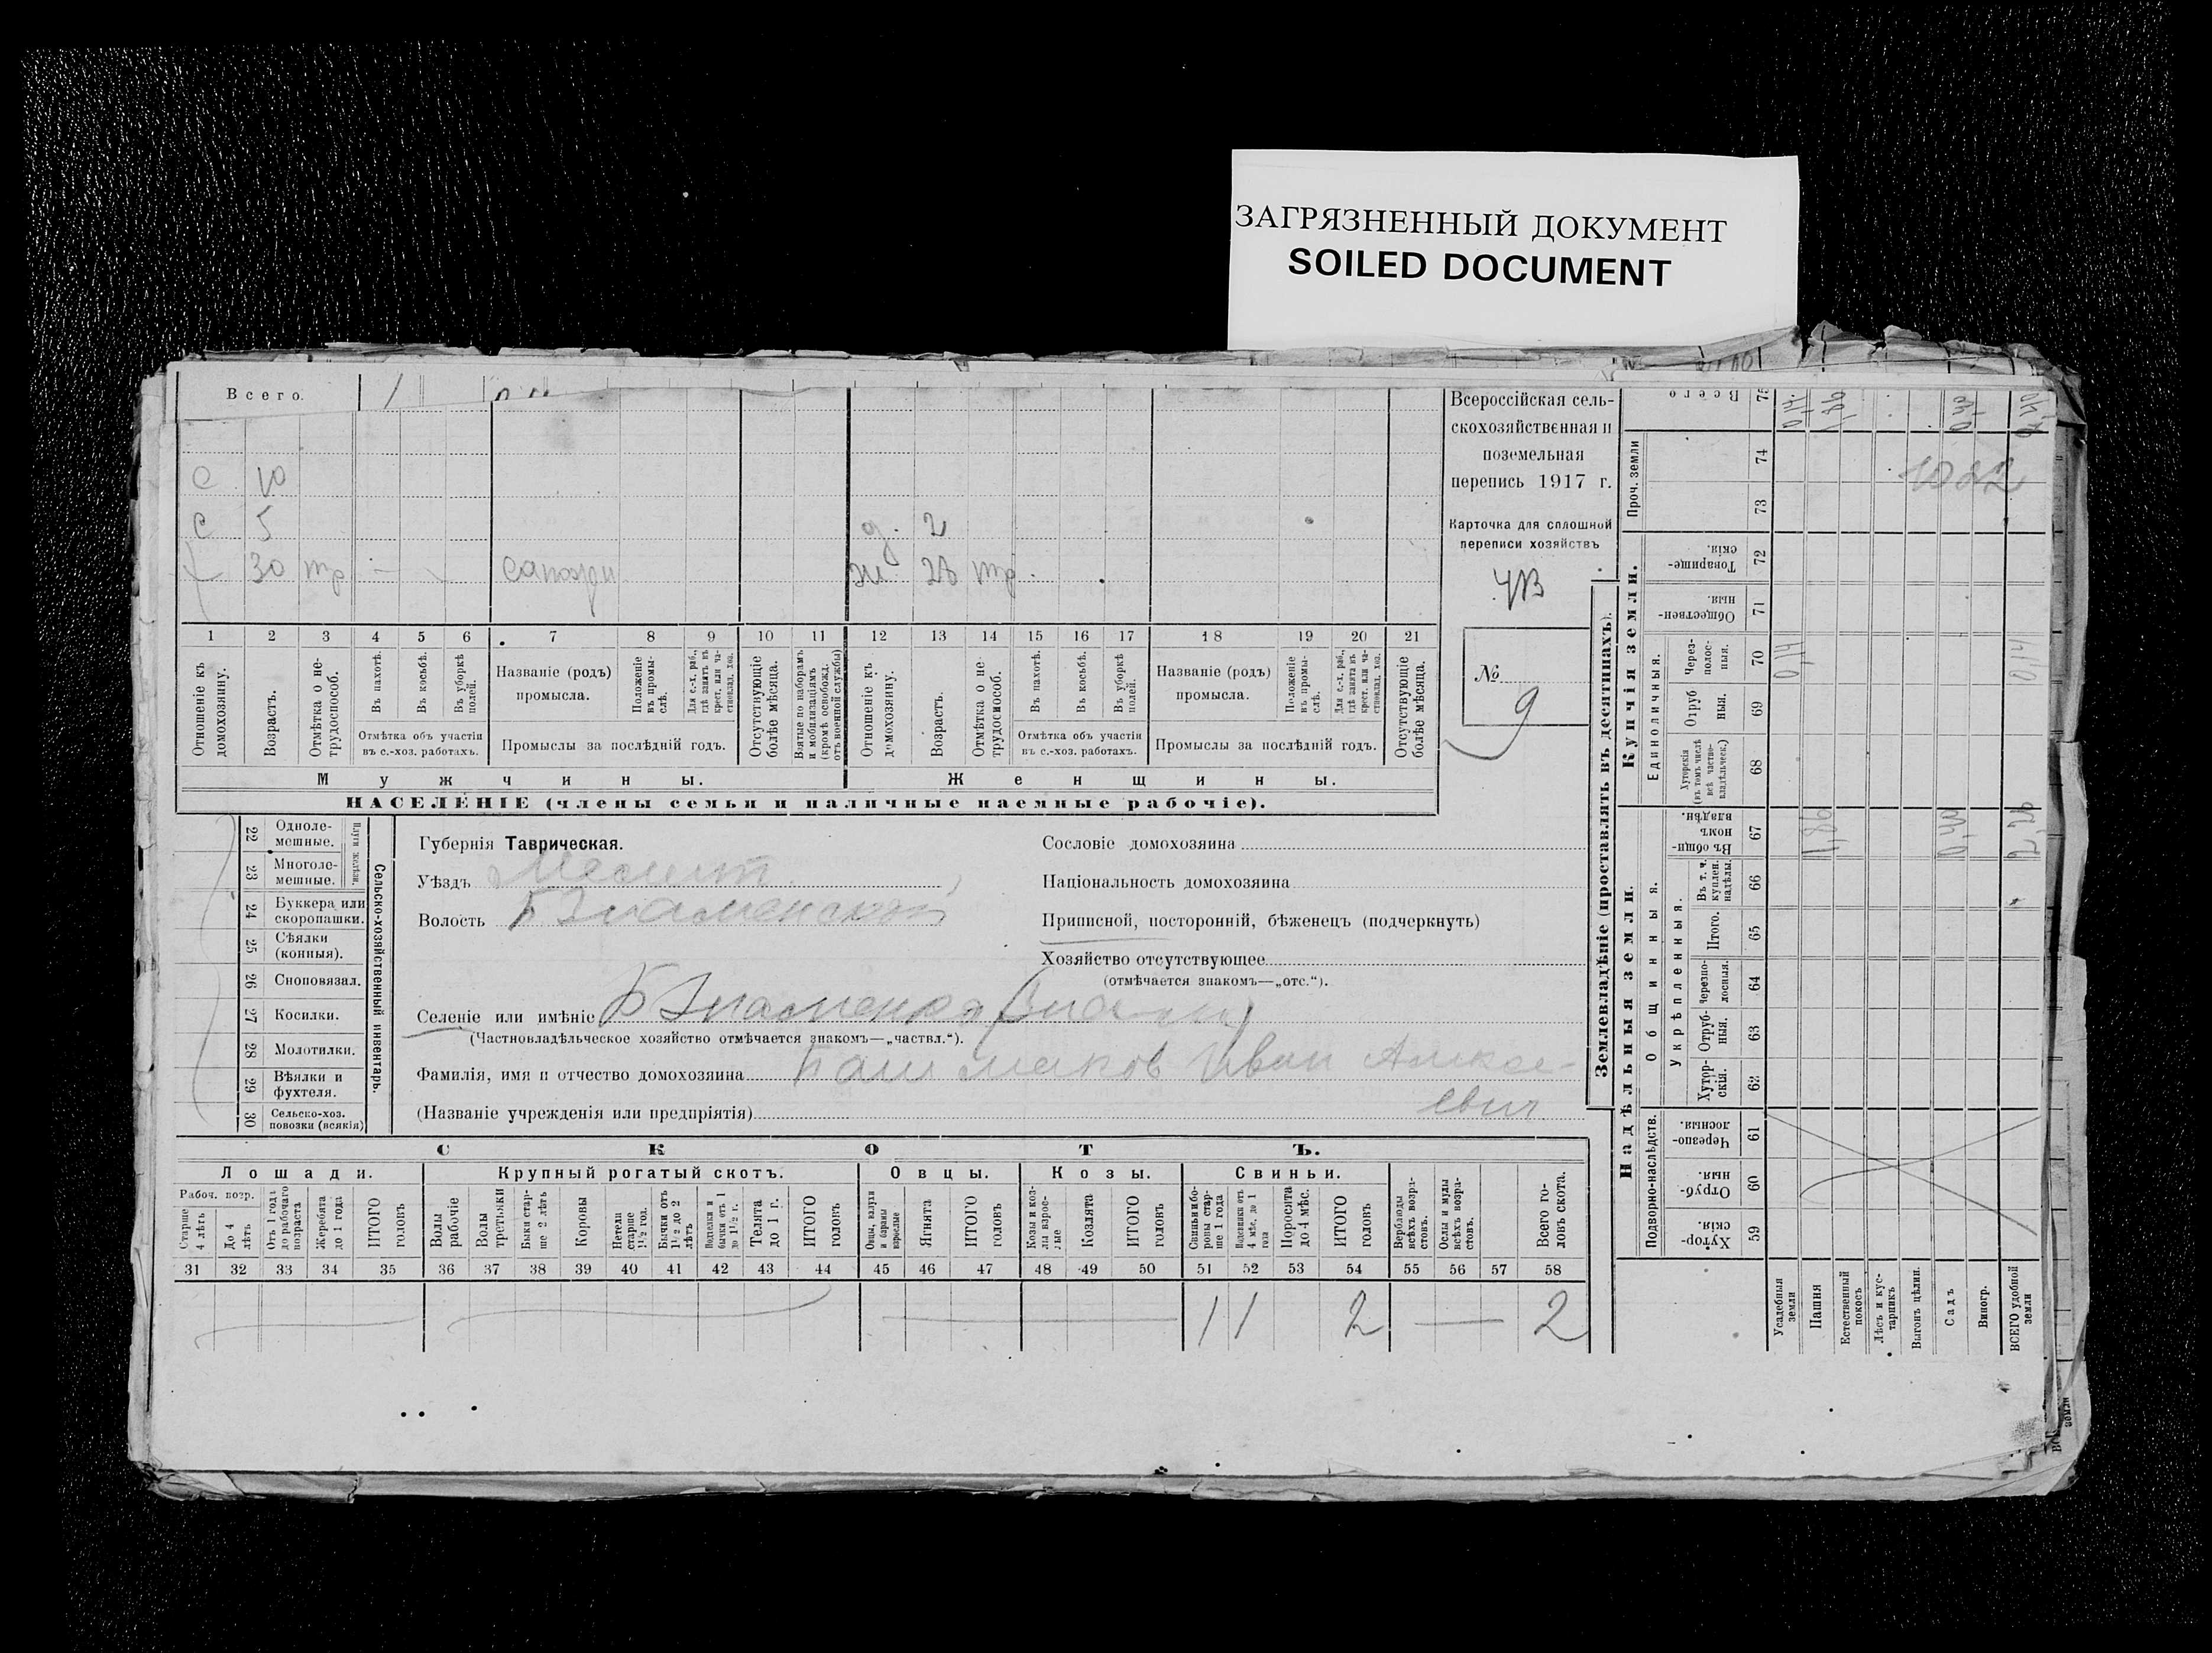 ЗАГРЯЗНЕННЫЙ ДОКУМЕНТ
SOILED DOCUMENT
Всего.
с 10
с 5 д. 2
30 тр ж 28 тр
1 2 3 4 5 6 7 8 9 10 11 12 13 14 15 16 17 18 19 20 21
Отношеніе къ домохозяину.
Возрастъ.
Отмѣтка о нетрудоспособ.
Въ пахотѣ.
Въ косьбѣ.
Въ уборкѣ полей.
Отмѣтка объ участіи въ с.-хоз. работахъ.
Названіе (родъ) промысла.
Положеніе въ промыслѣ.
Для с.-х. раб., гдѣ занятъ въ крест. или частновлад. хоз.
Промыслы за послѣдній годъ.
Отсутствующіе болѣе мѣсяца.
Взятые по наборамъ и мобилизаціямъ (кромѣ освобожд. отъ военной службы)
Отношеніе къ домохозяину.
Возрастъ.
Отмѣтка о нетрудоспособ.
Въ пахотѣ.
Въ косьбѣ.
Въ уборкѣ полей.
Отмѣтка объ участіи въ с.-хоз. работахъ.
Названіе (родъ) промысла.
Положеніе въ промыслѣ.
Для с.-х. раб., гдѣ занята въ крест. или частновлад. хоз.
Промыслы за послѣдній годъ.
Отсутствующіе болѣе мѣсяца.
Мужчины. Женщины.
НАСЕЛЕНІЕ (члены семьи и наличные наемные рабочіе).
Всероссійская сель-
скохозяйственная и
поземельная
перепись 1917 г.
Карточка для сплошной
переписи хозяйствъ
№
9
22 Одноле-
мешные.
23 Многоле-
мешные.
Плуги желѣзн.
24 Буккера или
скоропашки.
25 Сѣялки
(конныя).
26 Сноповязал.
27 Косилки.
28 Молотилки.
29 Вѣялки и
фухтеля.
30 Сельско-хоз.
повозки (всякія)
Сельско-хозяйственный инвентарь.
Губернія Таврическая.
Уѣздъ Мелит
Волость Б Знаменской
Селеніе или имѣніе Б Знаменка
(Частновладѣльческое хозяйство отмѣчается знакомъ—„частвл.“).
Фамилія, имя и отчество домохозяина Башмаков Иван Алексе-
евич
(Названіе учрежденія или предпріятія)
Сословіе домохозяина
Національность домохозяина
Приписной, посторонній, бѣженецъ (подчеркнуть)
Хозяйство отсутствующее
(отмѣчается знакомъ—„отс.“).
СКОТЪ.
Лошади. Крупный рогатый скотъ. Овцы. Козы. Свиньи.
Рабоч. возр.
Старше 4 лѣтъ
До 4 лѣтъ
Отъ 1 года до рабочаго возраста
Жеребята до 1 года
ИТОГО головъ
Волы рабочіе
Волы третьяки
Быки старше 2 лѣтъ
Коровы
Нетели старше 1½ год.
Бычки отъ 1½ до 2 лѣтъ
Подтелки и бычки отъ 1 до 1½ г.
Телята до 1 г.
ИТОГО головъ
Овцы, валухи и бараны взрослые
Ягнята
ИТОГО головъ
Козы и козлы взрослые
Козлята
ИТОГО головъ
Свиньи и боровы старше 1 года
Подсвинки отъ 4 мѣс. до 1 года
Поросята до 4 мѣс.
ИТОГО головъ
Верблюды всѣхъ возрастовъ.
Ослы и мулы всѣхъ возрастовъ.
Всего головъ скота.
31 32 33 34 35 36 37 38 39 40 41 42 43 44 45 46 47 48 49 50 51 52 53 54 55 56 57 58
1 1 2 2
Землевладѣніе (проставлять въ десятинахъ).
Надѣльныя земли. Купчія земли. Проч. земли
Подворно-наслѣдств. Общинныя. Единоличныя.
Укрѣпленныя.
Хуторскія. 59
Отрубныя. 60
Черезполосныя. 61
Хуторскія. 62
Отрубныя. 63
Черезполосныя. 64
Итого. 65
Въ т. ч. куплен. надѣлы. 66
Въ общинномъ владѣн. 67
Хуторскія (въ томъ числѣ всѣ частновладѣльческ.) 68
Отрубныя. 69
Черезполосныя. 70
Общественныя. 71
Товарищескія. 72
73
74
Всего 75
Усадебныя земли 0,14 0,14
Пашня 1,86 1,86
Естественный покосъ
Лѣсъ и кустарникъ
Выгонъ цѣлин.
Садъ
Виногр.
ВСЕГО удобной земли 0,14